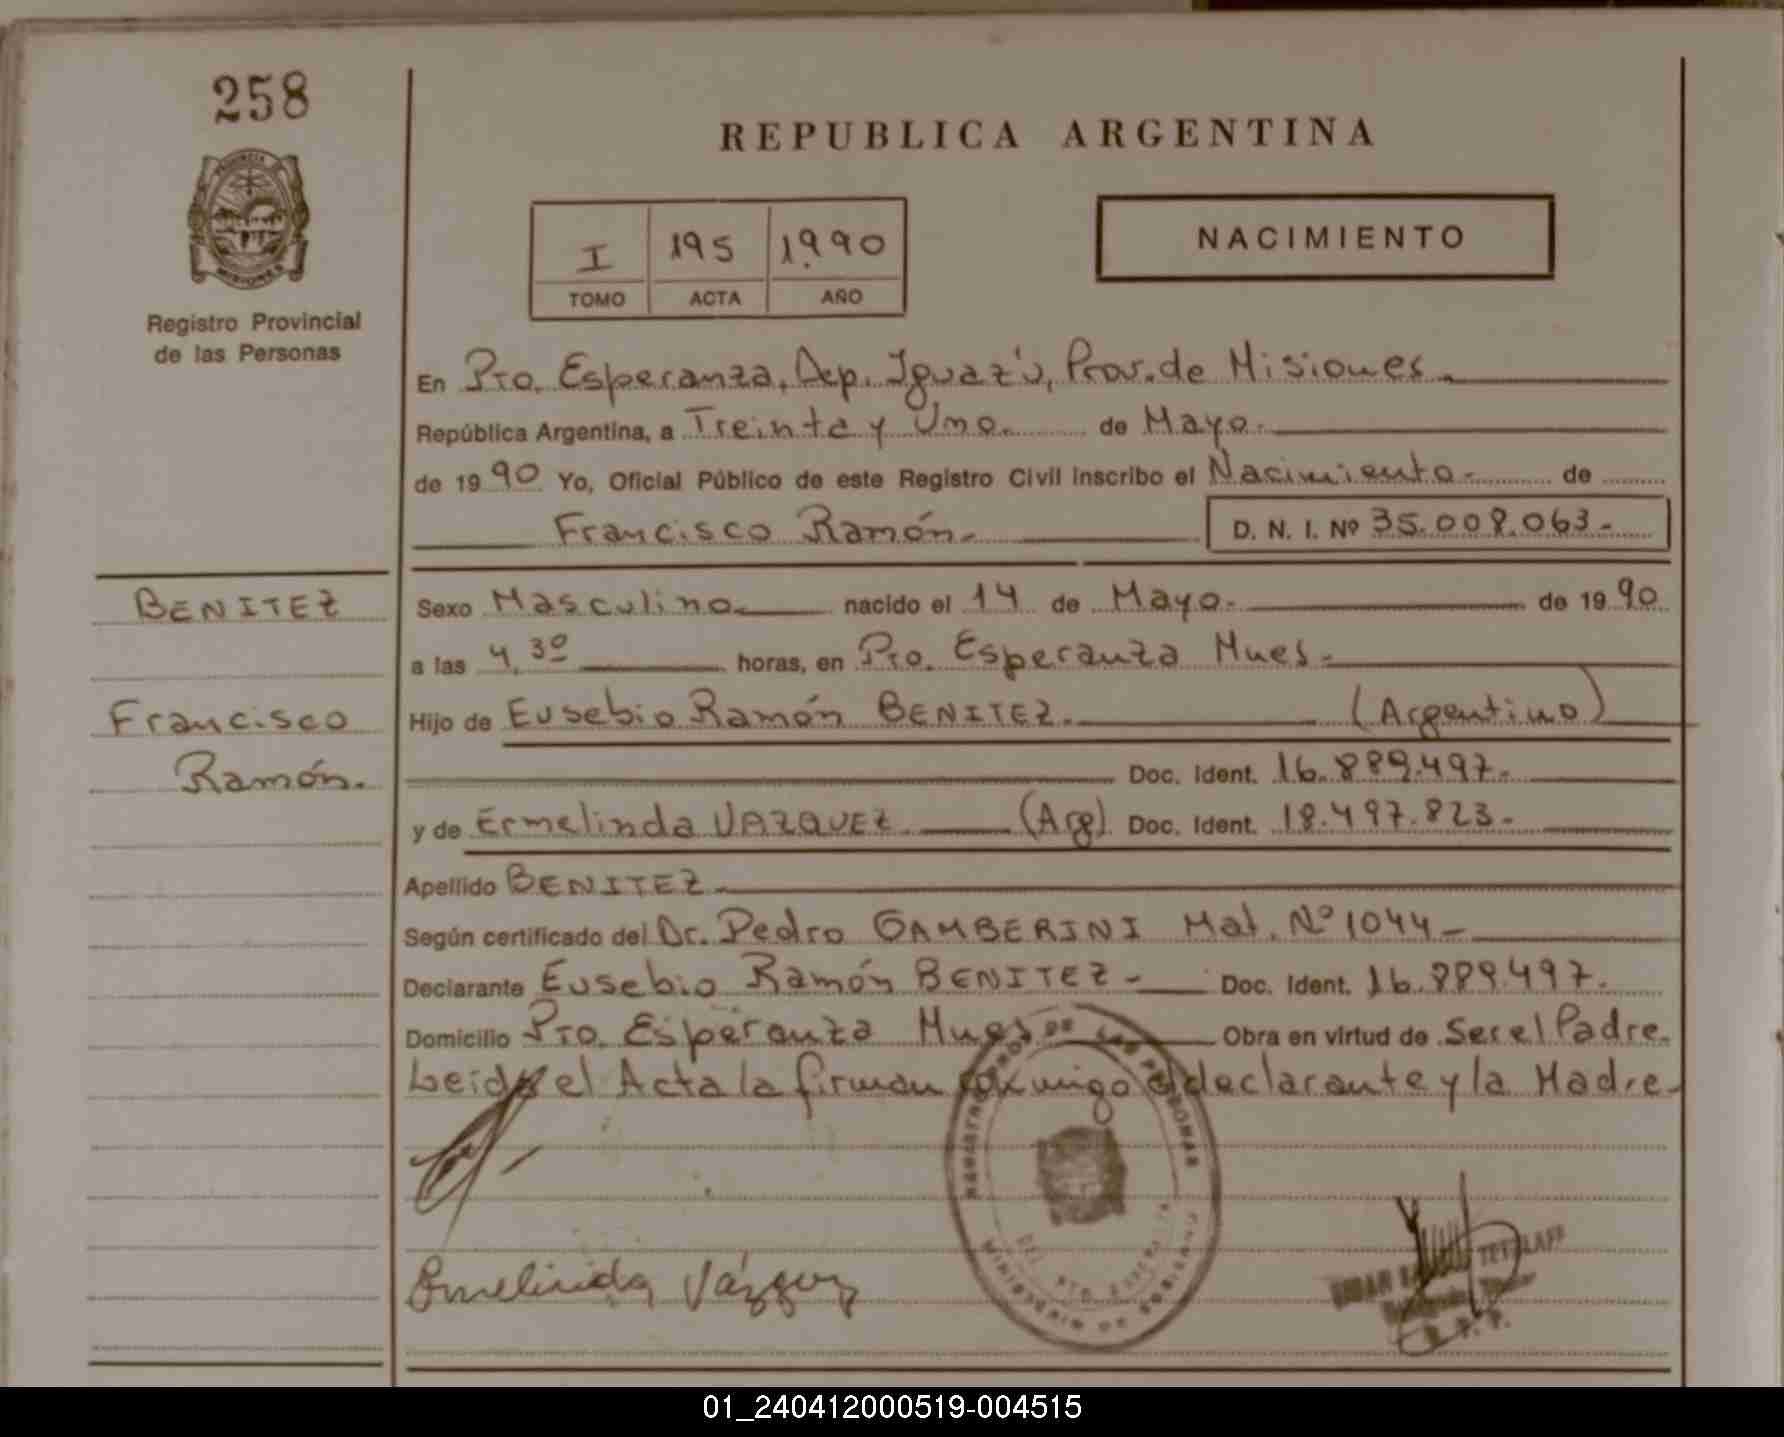 258
REPUBLICA ARGENTINA
I 195 1.990
TOMO ACTA AÑO
NACIMIENTO
Registro Provincial
de las Personas
En Pto. Esperanza, Dep. Iguazú, Prov. de Misiones.
República Argentina, a Treinta y Uno. de Mayo.
de 1990 Yo, Oficial Público de este Registro Civil inscribo el Nacimiento- de
Francisco Ramón.
D. N. I. Nº 35.008.063-
BENITEZ
Sexo Masculino. nacido el 14 de Mayo. de 1990
a las 4,30 horas, en Pto. Esperanza Mnes.
Francisco
Hijo de Eusebio Ramón BENITEZ. (Argentino)
Ramón.
Doc. Ident. 16.889.497.
y de Ermelinda VAZQUEZ (Arg) Doc. Ident. 18.497.823-
Apellido BENITEZ.
Según certificado del Dr. Pedro GAMBERINI Mat. Nº 1044-
Declarante Eusebio Ramón BENITEZ- Doc. Ident. 16.889.497.
Domicilio Pto. Esperanza Mnes Obra en virtud de Ser el Padre.
Leida el Acta la firman conmigo el declarante y la Madre-
DE LAS PERSONAS
MINISTERIO DE GOBIERNO
Ermelinda Vázquez
01_240412000519-004515